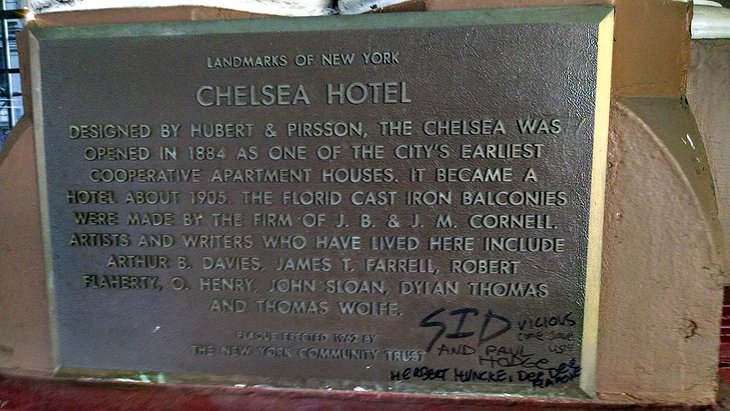 LANDMARKS OF NEW YORK
CHELSEA HOTEL
DESIGNED BY HUBERT & PIRSSON, THE CHELSEA WAS
OPENED IN 1884 AS ONE OF THE CITY'S EARLIEST
COOPERATIVE APARTMENT HOUSES. IT BECAME A
HOTEL ABOUT 1905. THE FLORID CAST IRON BALCONIES
WERE MADE BY THE FIRM OF J. B. & J. M. CORNELL.
ARTISTS AND WRITERS WHO HAVE LIVED HERE INCLUDE
ARTHUR B. DAVIES, JAMES T. FARRELL, ROBERT
FLAHERTY, O. HENRY, JOHN SLOAN, DYLAN THOMAS
AND THOMAS WOLFE.
PLAQUE ERECTED 1962 BY
THE NEW YORK COMMUNITY TRUST
SID VICIOUS
AND PAUL
HODGE
HERBERT HUNCKE, DEE DEE
RAMONE